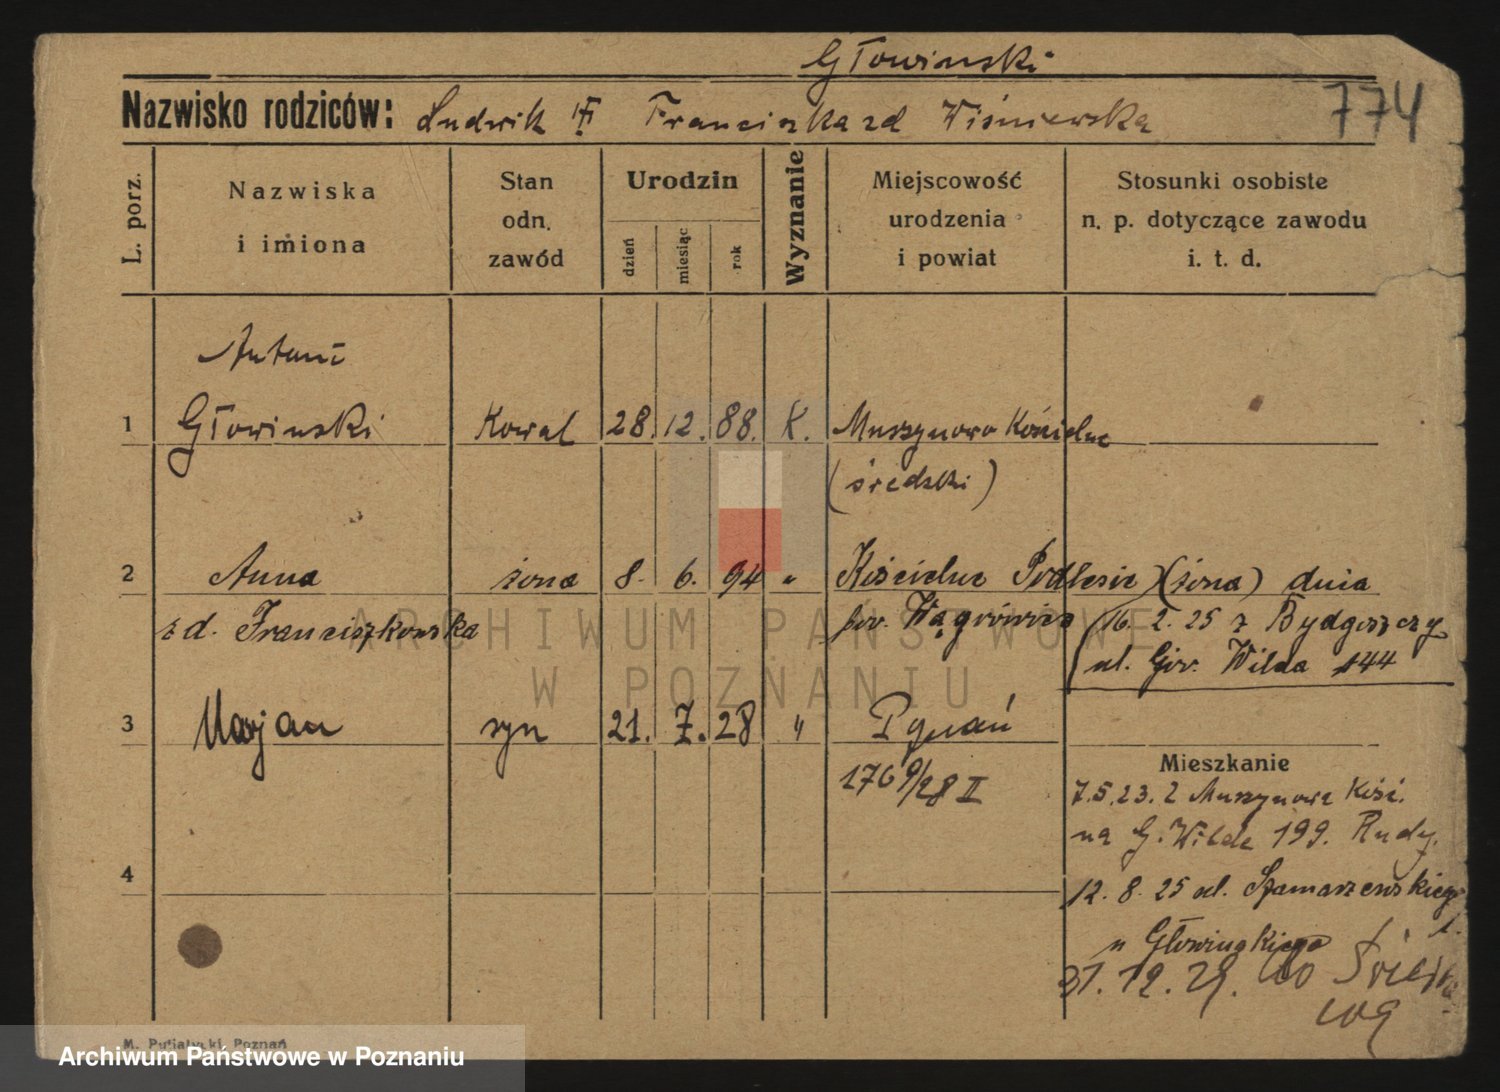 Głowinski
Nazwisko rodziców: Ludwik Franciszka zd Wiśniewska
774
L. porz.
Nazwiska
i imiona
Stan
odn.
zawód
Urodzin
dzień
miesiąc
rok
Wyznanie
Miejscowość
urodzenia
i powiat
Stosunki osobiste
n. p. dotyczące zawodu
i. t. d.
Antoni
1 Głowinski Kowal 28. 12. 88. K. Muszynowo Kościelne
(średzki)
2 Anna żona 8. 6. 94 " Kościelne Podlesie (żona) dnia
zd. Franciszkowska pow. Wągrówiec 16. 2. 25 z Bydgoszczy
ul. Gór. Wilda 144
3 Marjan syn 21. 7. 28 " Poznań
1769/28 II
Mieszkanie
7.5.23. z Muszynowa Kość.
na G. Wilda 199. Rudy.
4
12. 8. 25 ul. Szamarzewskiego
u Głowinskiego 1.
31. 12. 29. do
M. Putiatycki, Poznań
ARCHIWUM PAŃSTWOWE
W POZNANIU
Archiwum Państwowe w Poznaniu